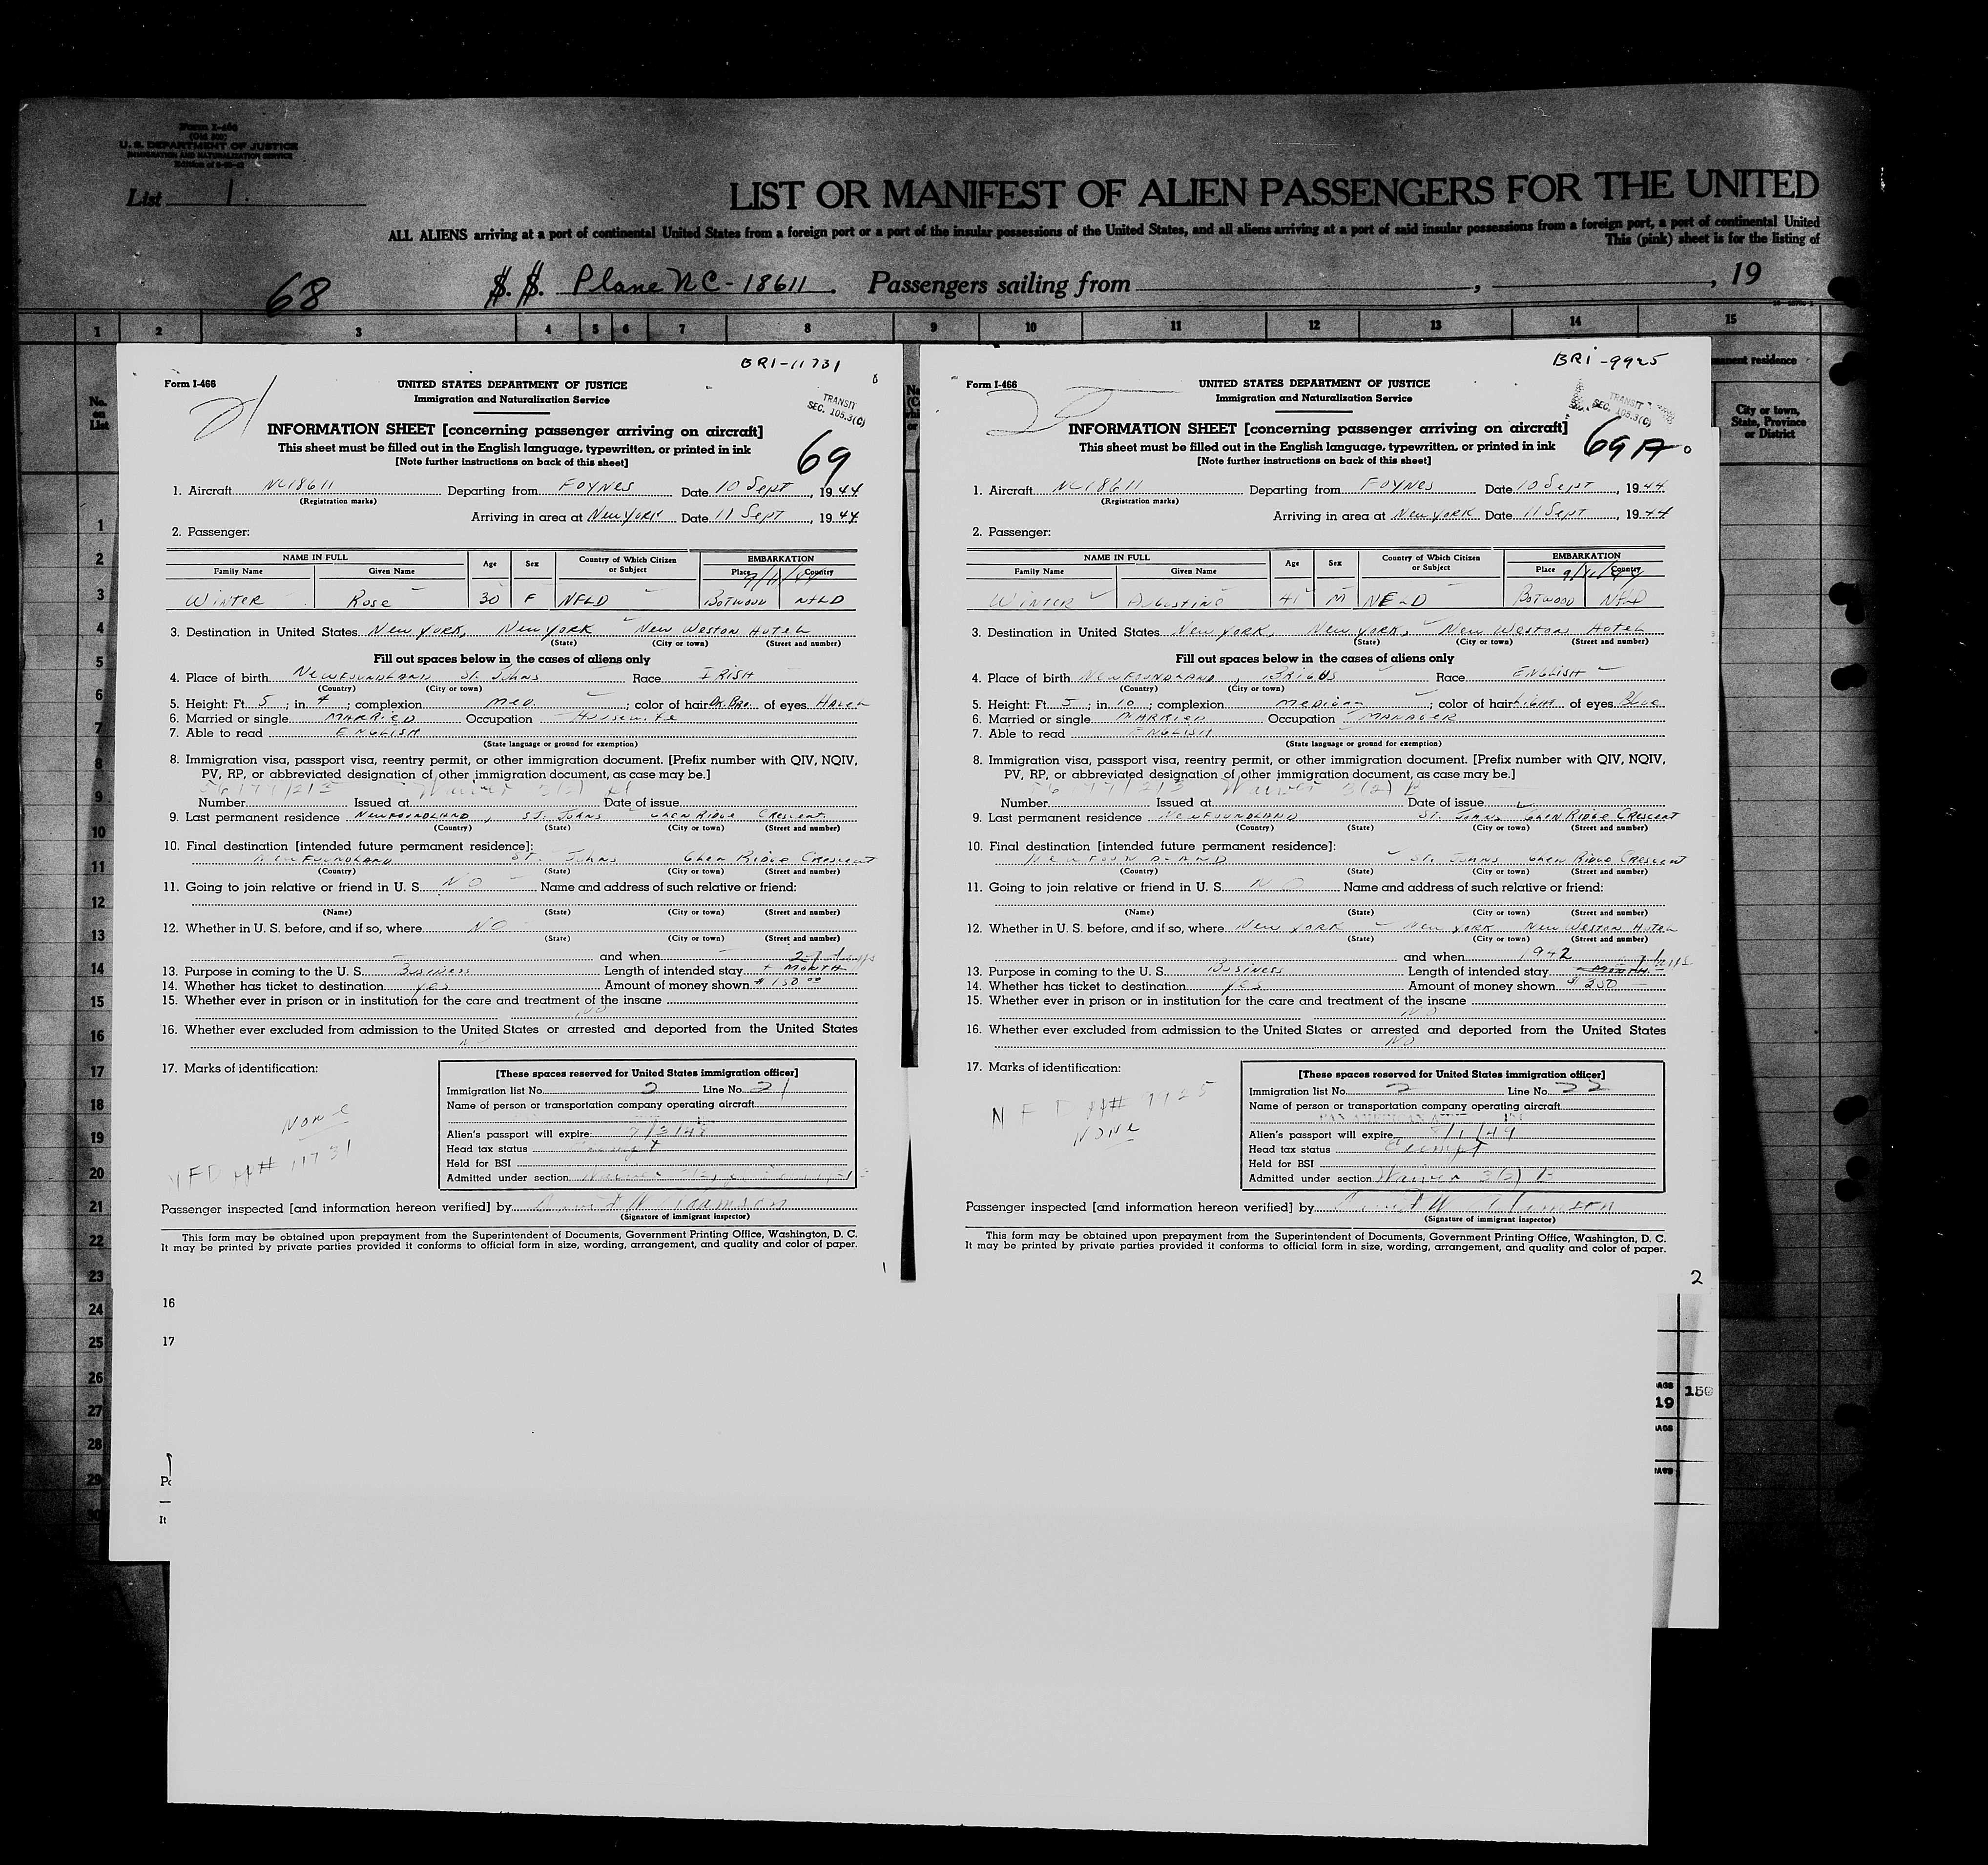 Form I-466
(Old 500)
U. S. DEPARTMENT OF JUSTICE
IMMIGRATION AND NATURALIZATION SERVICE
List 1.
LIST OR MANIFEST OF ALIEN PASSENGERS FOR THE UNITED
ALL ALIENS arriving at a port of continental United States from a foreign port or a port of the insular possessions of the United States, and all aliens arriving at a port of said insular possessions from a foreign port, a port of continental United
This (pink) sheet is for the listing of
68 S. S. Plane NC-18611. Passengers sailing from , , 19
1 2 3 4 5 6 7 8 9 10 11 12 13 14 15
No. on List
manent residence
City or town, State, Province or District
1
2
3
4
5
6
7
8
9
10
11
12
13
14
15
16
17
18
19
20
21
22
23
24
25
26
27
28
29
30
BRI-11731
Form I-466
21
UNITED STATES DEPARTMENT OF JUSTICE
Immigration and Naturalization Service
TRANSIT
SEC. 105.3(C)
INFORMATION SHEET [concerning passenger arriving on aircraft]
This sheet must be filled out in the English language, typewritten, or printed in ink
[Note further instructions on back of this sheet]
69
1. Aircraft NC18611 Departing from FOYNES Date 10 Sept, 1944
(Registration marks)
Arriving in area at New York Date 11 Sept, 1944
2. Passenger:
NAME IN FULL Age Sex Country of Which Citizen or Subject EMBARKATION
Family Name Given Name Place Country
9/11/44
WINTER Rose 30 F NFLD BOTWOOD NFLD
3. Destination in United States New York, New York New Weston Hotel
(State) (City or town) (Street and number)
Fill out spaces below in the cases of aliens only
4. Place of birth NEWFOUNDLAND ST. JOHNS Race IRISH
(Country) (City or town)
5. Height: Ft. 5; in 4; complexion MED.; color of hair DK.BRO. of eyes HAZEL
6. Married or single MARRIED Occupation Housewife
7. Able to read ENGLISH
(State language or ground for exemption)
8. Immigration visa, passport visa, reentry permit, or other immigration document. [Prefix number with QIV, NQIV,
PV, RP, or abbreviated designation of other immigration document, as case may be.]
Waiver
Number Issued at Date of issue
9. Last permanent residence NEWFOUNDLAND, ST. JOHNS GLEN RIDGE CRESCENT
(Country) (State) (City or town) (Street and number)
10. Final destination [intended future permanent residence]:
NEWFOUNDLAND ST. JOHNS GLEN RIDGE CRESCENT
(Country) (State) (City or town) (Street and number)
11. Going to join relative or friend in U. S. NO Name and address of such relative or friend:
(Name) (State) (City or town) (Street and number)
12. Whether in U. S. before, and if so, where NO
(State) (City or town) (Street and number)
and when
13. Purpose in coming to the U. S. Business Length of intended stay MONTH
14. Whether has ticket to destination yes Amount of money shown $150 00
15. Whether ever in prison or in institution for the care and treatment of the insane
NO
16. Whether ever excluded from admission to the United States or arrested and deported from the United States
17. Marks of identification:
NONE
NFD PP# 11731
[These spaces reserved for United States immigration officer]
Immigration list No. 2 Line No. 21
Name of person or transportation company operating aircraft
Alien's passport will expire
Head tax status Exempt
Held for BSI
Admitted under section Waiver
Passenger inspected [and information hereon verified] by
(Signature of immigrant inspector)
This form may be obtained upon prepayment from the Superintendent of Documents, Government Printing Office, Washington, D. C.
It may be printed by private parties provided it conforms to official form in size, wording, arrangement, and quality and color of paper.
16
17
It
BRI-9925
Form I-466
UNITED STATES DEPARTMENT OF JUSTICE
Immigration and Naturalization Service
TRANSIT
SEC. 105.3(C)
INFORMATION SHEET [concerning passenger arriving on aircraft]
This sheet must be filled out in the English language, typewritten, or printed in ink
[Note further instructions on back of this sheet]
69A
1. Aircraft NC18611 Departing from FOYNES Date 10 Sept, 1944
(Registration marks)
Arriving in area at New York Date 11 Sept, 1944
2. Passenger:
NAME IN FULL Age Sex Country of Which Citizen or Subject EMBARKATION
Family Name Given Name Place Country
9/11/44
WINTER Augustine 41 M NFLD BOTWOOD NFLD
3. Destination in United States New York, New York, New Weston Hotel
(State) (City or town) (Street and number)
Fill out spaces below in the cases of aliens only
4. Place of birth NEWFOUNDLAND, BRIGUS Race ENGLISH
(Country) (City or town)
5. Height: Ft. 5; in 10; complexion MEDIUM; color of hair LIGHT of eyes Blue
6. Married or single MARRIED Occupation MANAGER
7. Able to read ENGLISH
(State language or ground for exemption)
8. Immigration visa, passport visa, reentry permit, or other immigration document. [Prefix number with QIV, NQIV,
PV, RP, or abbreviated designation of other immigration document, as case may be.]
Waiver
Number Issued at Date of issue
9. Last permanent residence NEWFOUNDLAND ST. JOHNS GLEN RIDGE CRESCENT
(Country) (State) (City or town) (Street and number)
10. Final destination [intended future permanent residence]:
NEWFOUNDLAND ST. JOHNS GLEN RIDGE CRESCENT
(Country) (State) (City or town) (Street and number)
11. Going to join relative or friend in U. S. NO Name and address of such relative or friend:
(Name) (State) (City or town) (Street and number)
12. Whether in U. S. before, and if so, where New York New York New Weston Hotel
(State) (City or town) (Street and number)
and when 1942
13. Purpose in coming to the U. S. Business Length of intended stay MONTH
14. Whether has ticket to destination yes Amount of money shown $250
15. Whether ever in prison or in institution for the care and treatment of the insane
NO
16. Whether ever excluded from admission to the United States or arrested and deported from the United States
NO
17. Marks of identification:
NFD PP# 9925
NONE
[These spaces reserved for United States immigration officer]
Immigration list No. 2 Line No. 22
Name of person or transportation company operating aircraft
PAN AMERICAN
Alien's passport will expire
Head tax status Exempt
Held for BSI
Admitted under section Waiver
Passenger inspected [and information hereon verified] by
(Signature of immigrant inspector)
This form may be obtained upon prepayment from the Superintendent of Documents, Government Printing Office, Washington, D. C.
It may be printed by private parties provided it conforms to official form in size, wording, arrangement, and quality and color of paper.
2
19